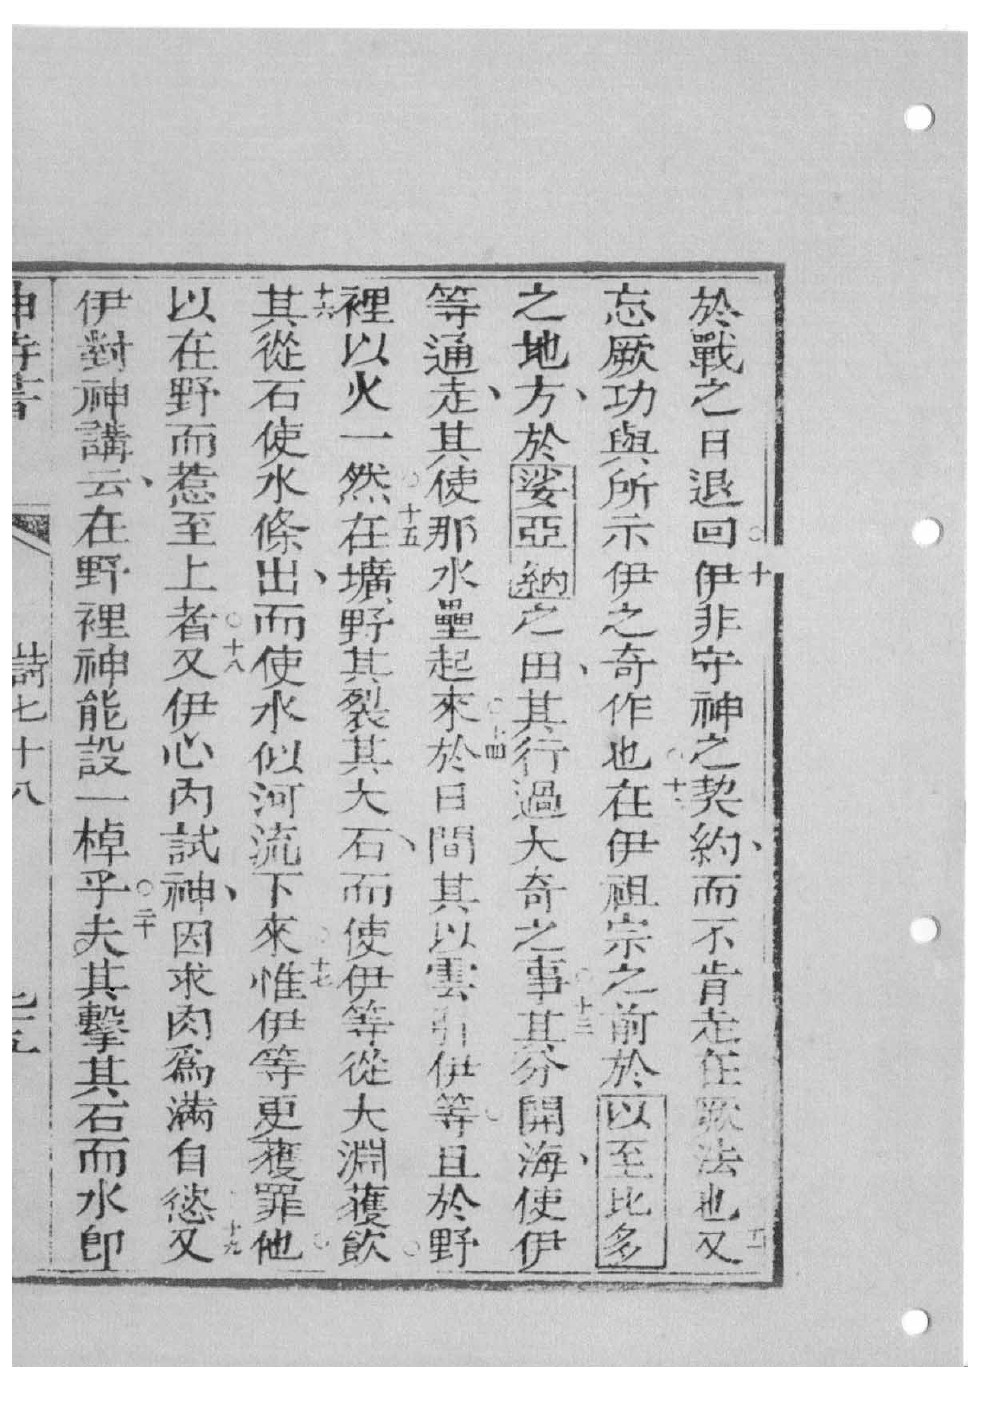 於戰之日退回○十伊非守神之契約、而不肯走在厥法也又
忘厥功與所示伊之奇作也○十二在伊祖宗之前於以至比多
之地方、於娑亞納之田、其行過大奇之事○十三其分開海、使伊
等通走、其使那水壘起來○十四於日間其以雲引伊等○且於野
裡以火一然○十五在壙野其裂其大石、而使伊等從大淵獲飲○
十六其從石使水條出、而使水似河流下來○十七惟伊等更獲罪他○
以在野而惹至上者○十八又伊心內試神、因求肉爲滿自慾十九又
伊對神講云、在野裡神能設一棹乎○二十夫其擊其石而水即
神詩書
詩七十八
七五